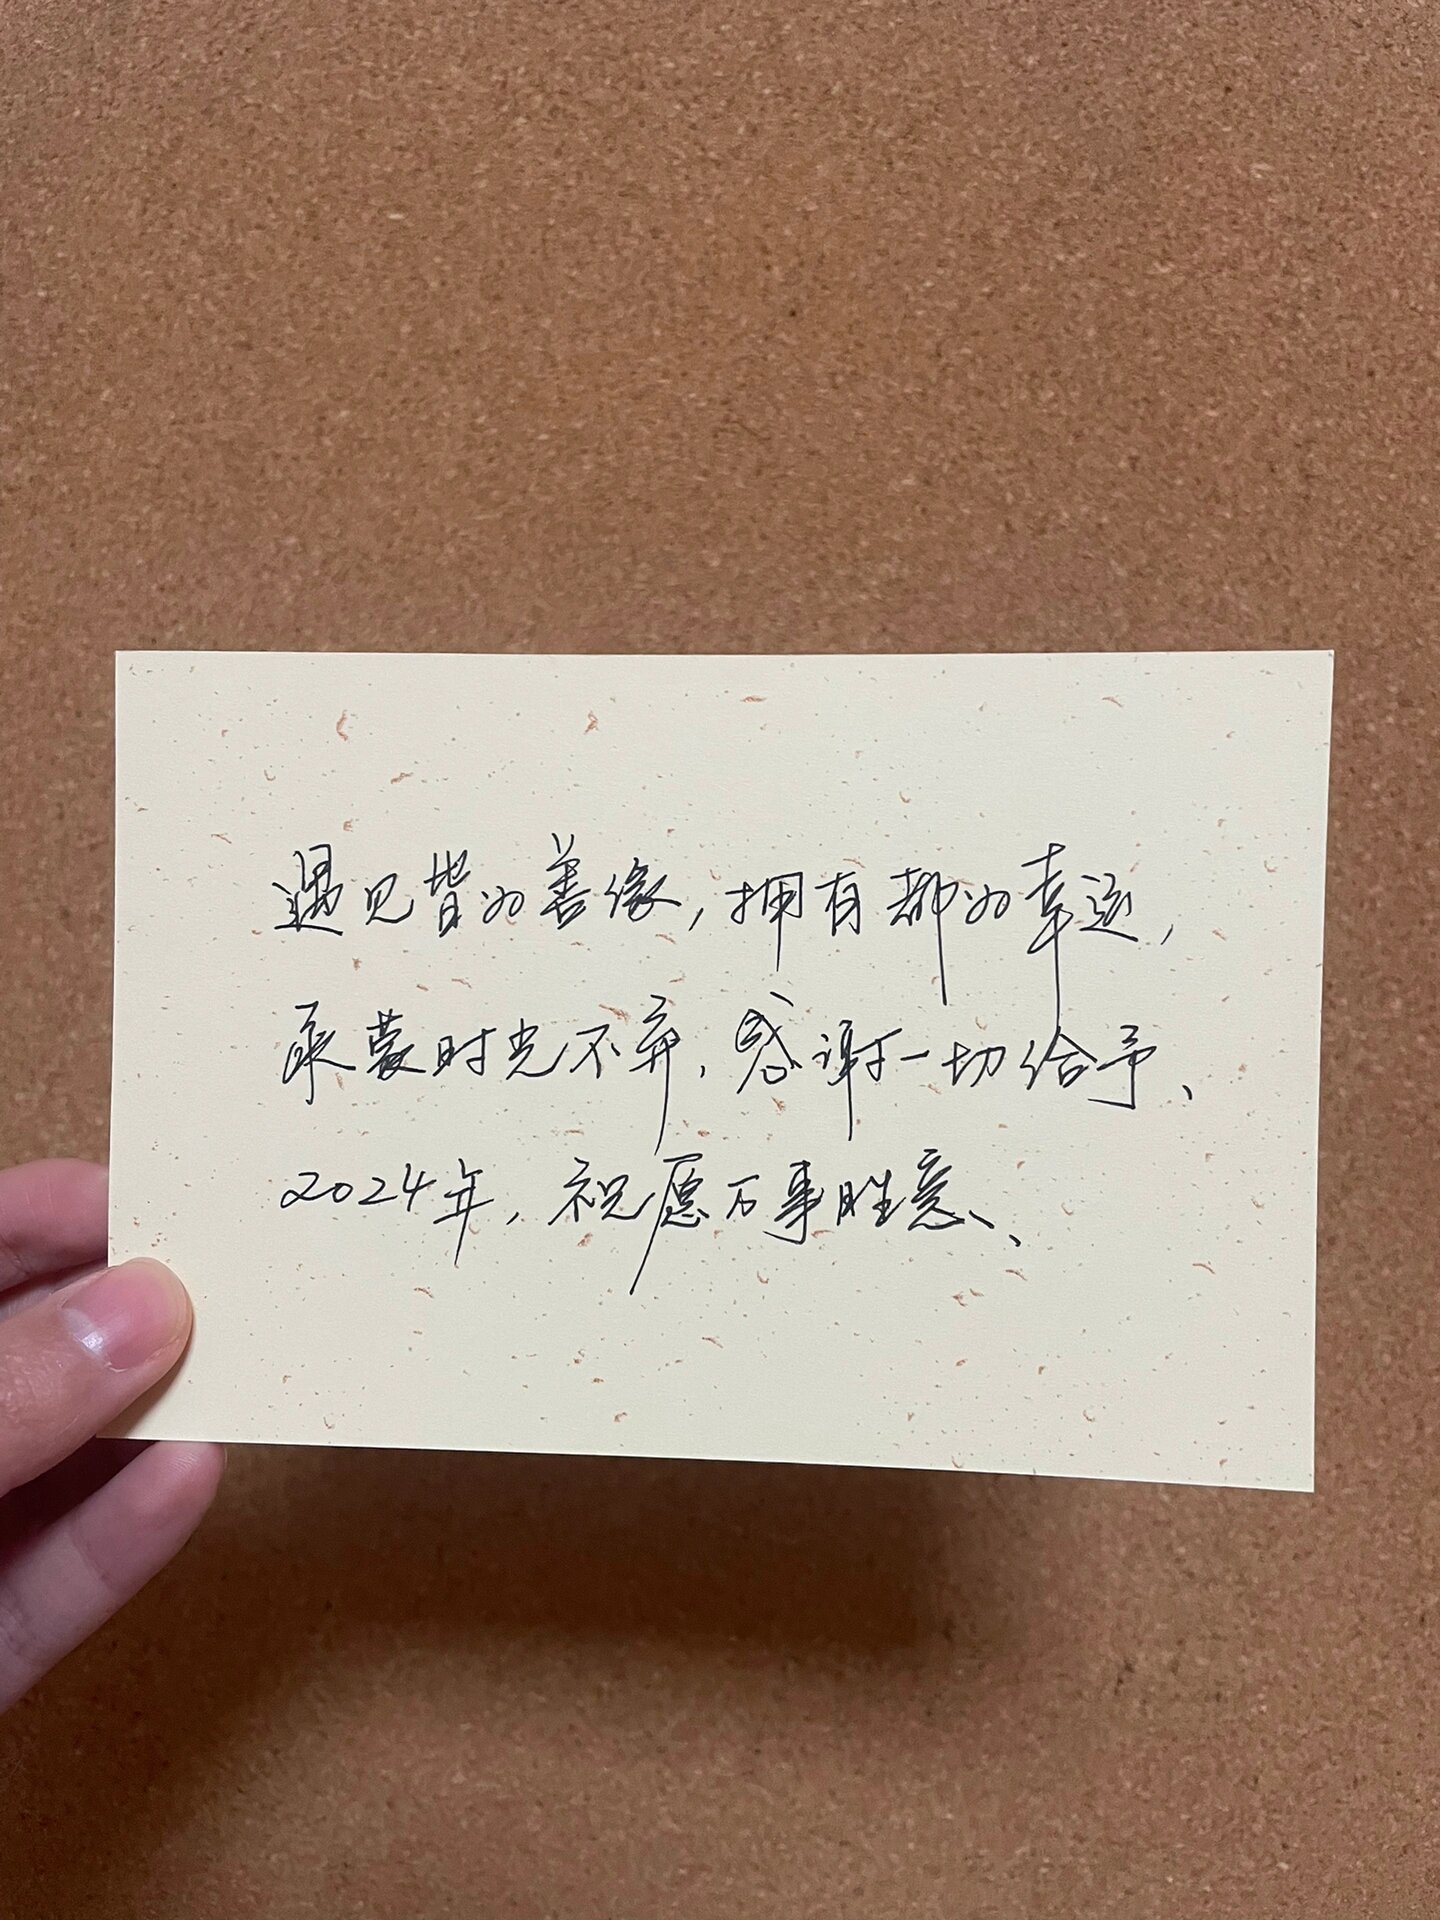 遇见皆为善缘，拥有都为幸运，
承蒙时光不弃，感谢一切给予、
2024年，祝愿万事胜意、